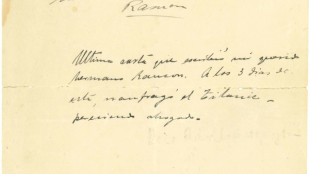 Ramon
Ultima carta que escribió mi querido
hermano Ramon. A los 3 dias de
esta, naufragó el Titanic -
pereciendo ahogado.